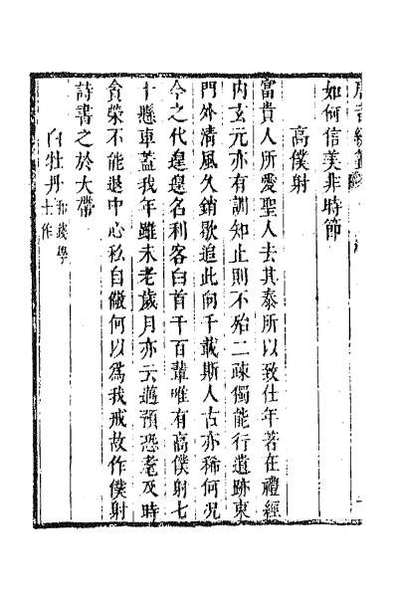 如何信美非時節
高僕射
富貴人所愛聖人去其泰所以致仕年著在禮經
内玄元亦有訓知止則不殆二疎獨能行遺跡東
門外清風久銷歇追此向千載斯人古亦稀何況
今之代遑遑名利客白首千百輩唯有高僕射七
十懸車蓋我年雖未老歲月亦云邁預恐耄及時
貪榮不能退中心私自儆何以爲我戒故作僕射
詩書之於大帶
白牡丹
學
士作